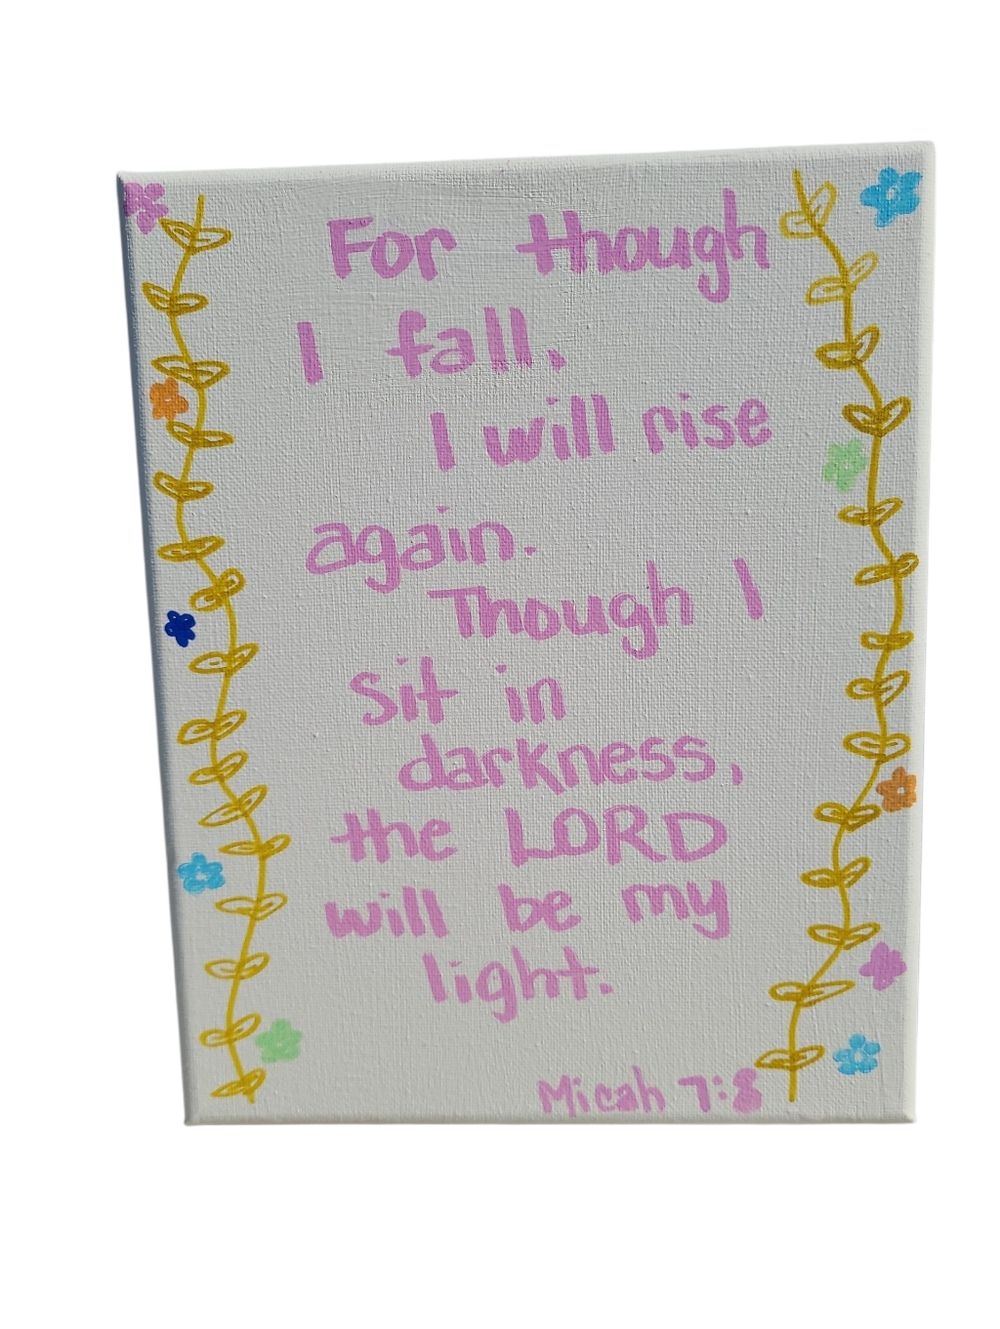 For though
I fall,
I will rise
again.
Though I
sit in
darkness,
the LORD
will be my
light.
Micah 7:8